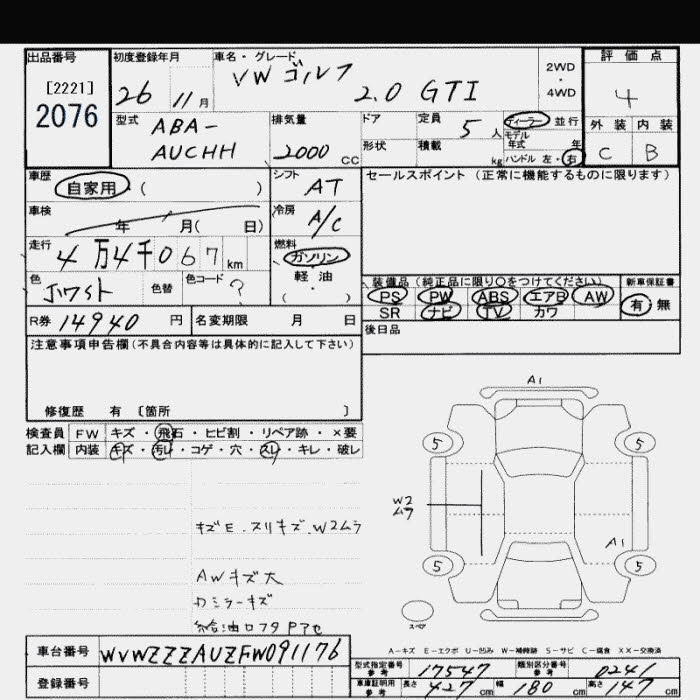 出品番号 初度登録年月 車名・グレード 評価点
[2221] VW ゴルフ 2WD
2076 26 11月 2.0 GTI ・ 4
4WD
型式 排気量 ドア 定員 5人 ディーラー 並行 外装 内装
ABA- モデル年式 年
AUCHH 2000cc 形状 積載 kg ハンドル 左・右 C B
車歴 シフト セールスポイント (正常に機能するものに限ります)
自家用 ( ) AT
車検 冷房
年 月( 日) A/C
走行 燃料
4万4千067km ガソリン
色 色替 色コード 軽・油 装備品 (純正品に限り○をつけてください) 新車保証書
ホワイト ? ( ) PS PW ABS エアB AW 有 無
R券 14940円 名変期限 月 日 SR ナビ TV カワ
後日品
注意事項申告欄(不具合内容等は具体的に記入して下さい)
修復歴 有 〔箇所 〕
検査員 FW キズ・飛石・ヒビ割・リペア跡・×要
記入欄 内装 キズ・汚レ・コゲ・穴・スレ・キレ・破レ
A1
5 5
W2
ムラ
A1
5 5
スペア
キズE.スリキズ.W2ムラ
AWキズ大
カミラーキズ
給油口フタPアセ
A-キズ E-エクボ U-凹み W-補修跡 S-サビ C-腐食 XX-交換済
車台番号 WVWZZZAUZFW091176
登録番号
型式指定番号 参考 17547 類別区分番号 参考 0241
車庫証明用 参考 長さ 427cm 幅 180cm 高さ 147cm